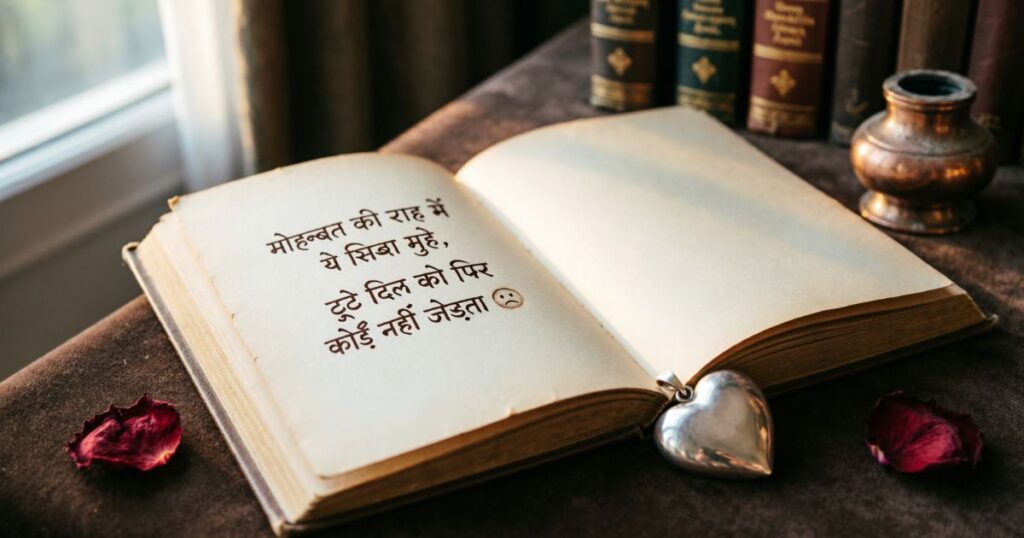 मोहन्बत की राह में
ये सिबा मुहे,
टूटे दिल को पिर
कोईँ नहीं जेड़ता ☹